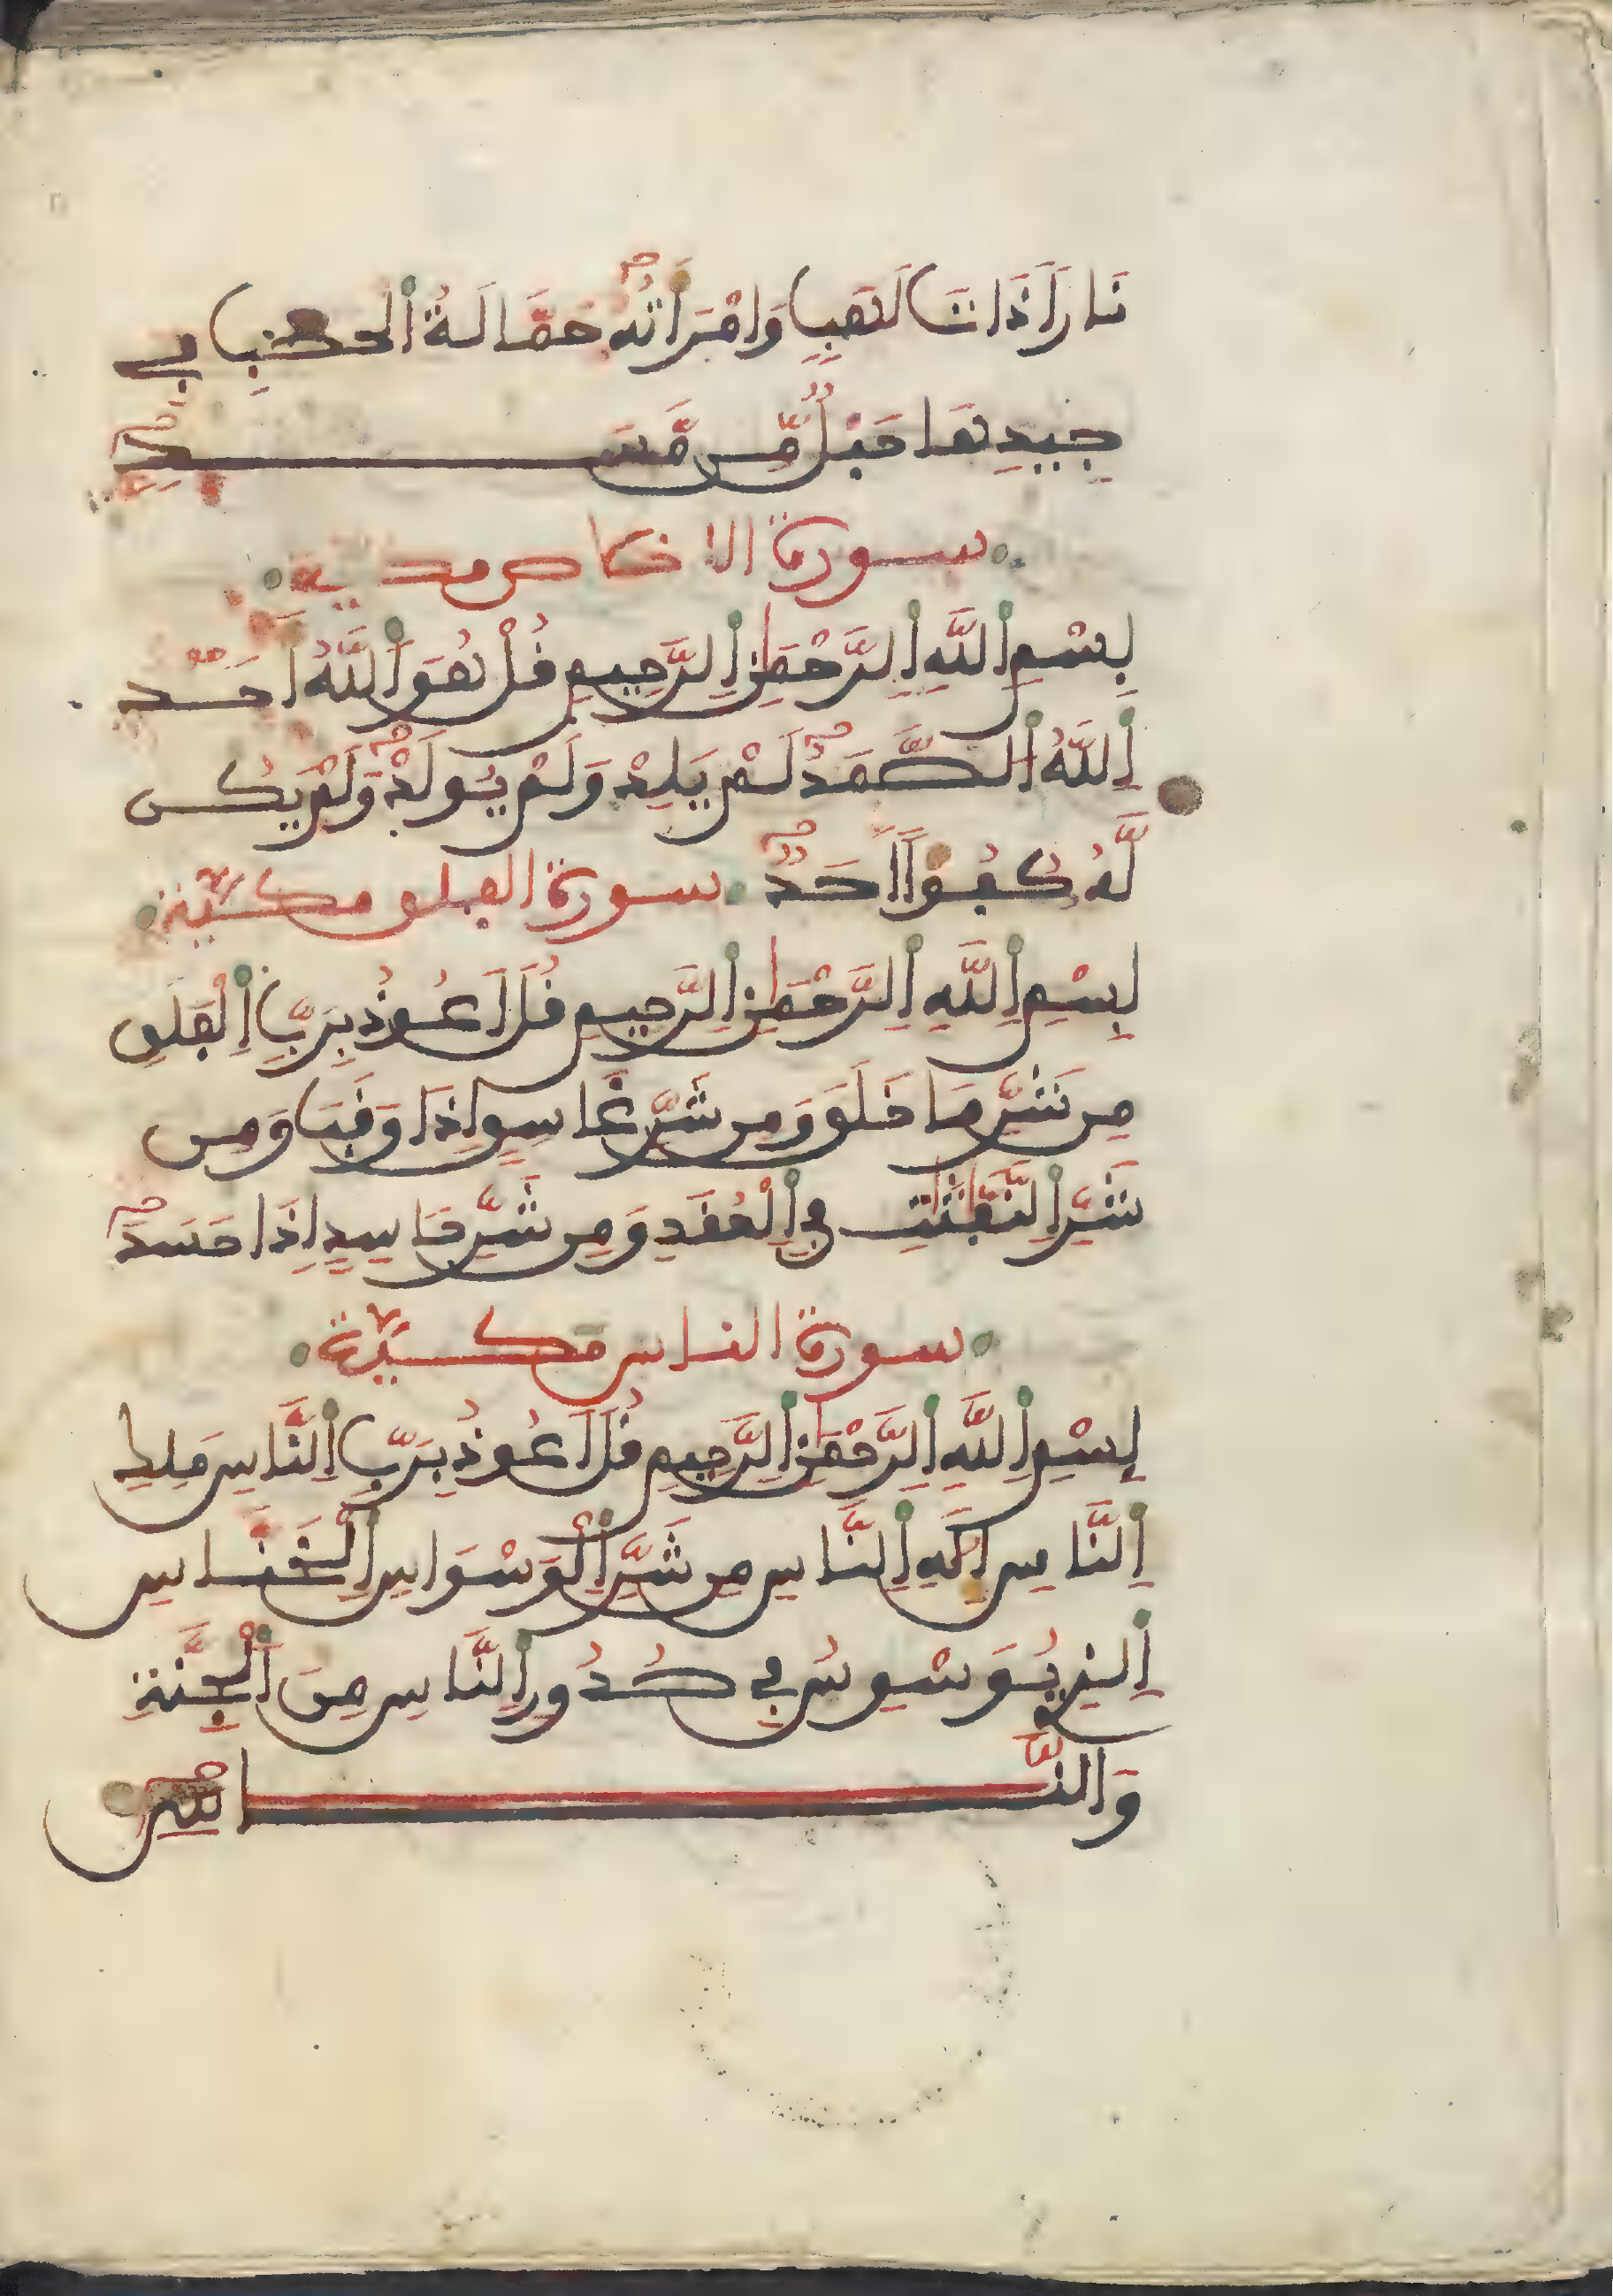 نَارًا ذَاتَ لَهَبٍ وَامْرَأَتُهُ حَمَّالَةُ الْحَطَبِ ڢِے
جِيدِهَا حَبْلٌ مِّن مَّسَدٍ
سورة الاخلاص مدنية
بِسْمِ اِللَّهِ اِلرَّحْمَٰنِ اِلرَّحِيمِ فُلْ هُوَ اَللَّهُ أَحَدٌ
اَللَّهُ اَلصَّمَدُ لَمْ يَلِدْ وَلَمْ يُولَدْ وَلَمْ يَكُن
لَّهُ كُڢُوًا أَحَدٌ سورة الڢلو مكية
بِسْمِ اِللَّهِ اِلرَّحْمَٰنِ اِلرَّحِيمِ فُلَ اَعُوذُ بِرَبِّ اِلْڢَلَوِ
مِن شَرِّ مَا خَلَوَ وَمِن شَرِّ غَاسِوٍ اِذَا وَفَبَ وَمِن
شَرِّ اِلنَّڢَّٰثَٰتِ ڢِے اِلْعُفَدِ وَمِن شَرِّ حَاسِدٍ اِذَا حَسَدَ
سورة الناس مكية
بِسْمِ اِللَّهِ اِلرَّحْمَٰنِ اِلرَّحِيمِ فُلَ اَعُوذُ بِرَبِّ اِلنَّاسِ مَلِكِ
اِلنَّاسِ إِلَٰهِ اِلنَّاسِ مِن شَرِّ اِلْوَسْوَاسِ اِلْخَنَّاسِ
اِلذِے يُوَسْوِسُ ڢِے صُدُورِ اِلنَّاسِ مِنَ اَلْجِنَّةِ
وَالنَّاسِ